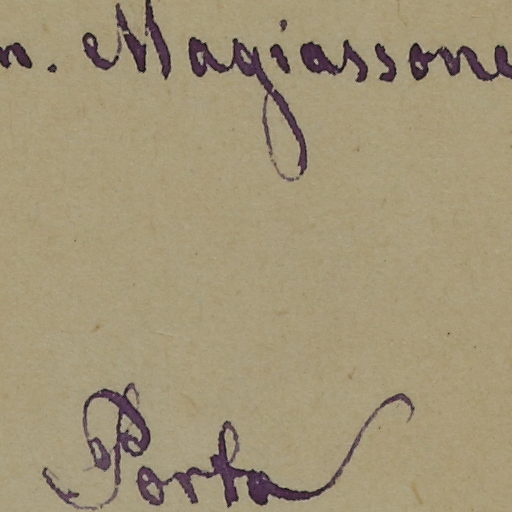 n. Magiassone
Porta